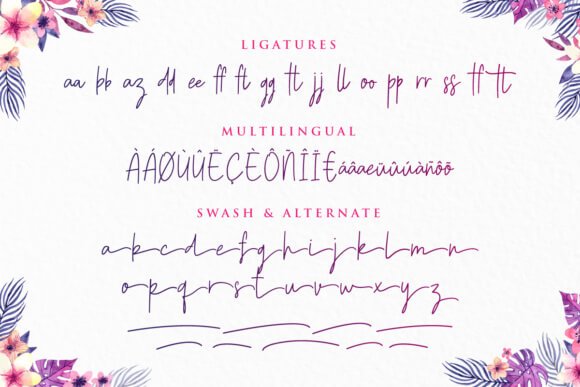 LIGATURES
aa bb az dd ee ff ft gg tt jj ll oo pp rr ss tf tt
MULTILINGUAL
ÀÁØÙÛËÇÈÔÑÎÏ€áâaeüûúùàñôõ
SWASH & ALTERNATE
a b c d e f g h i j k l m n
o p q r s t u v w x y z